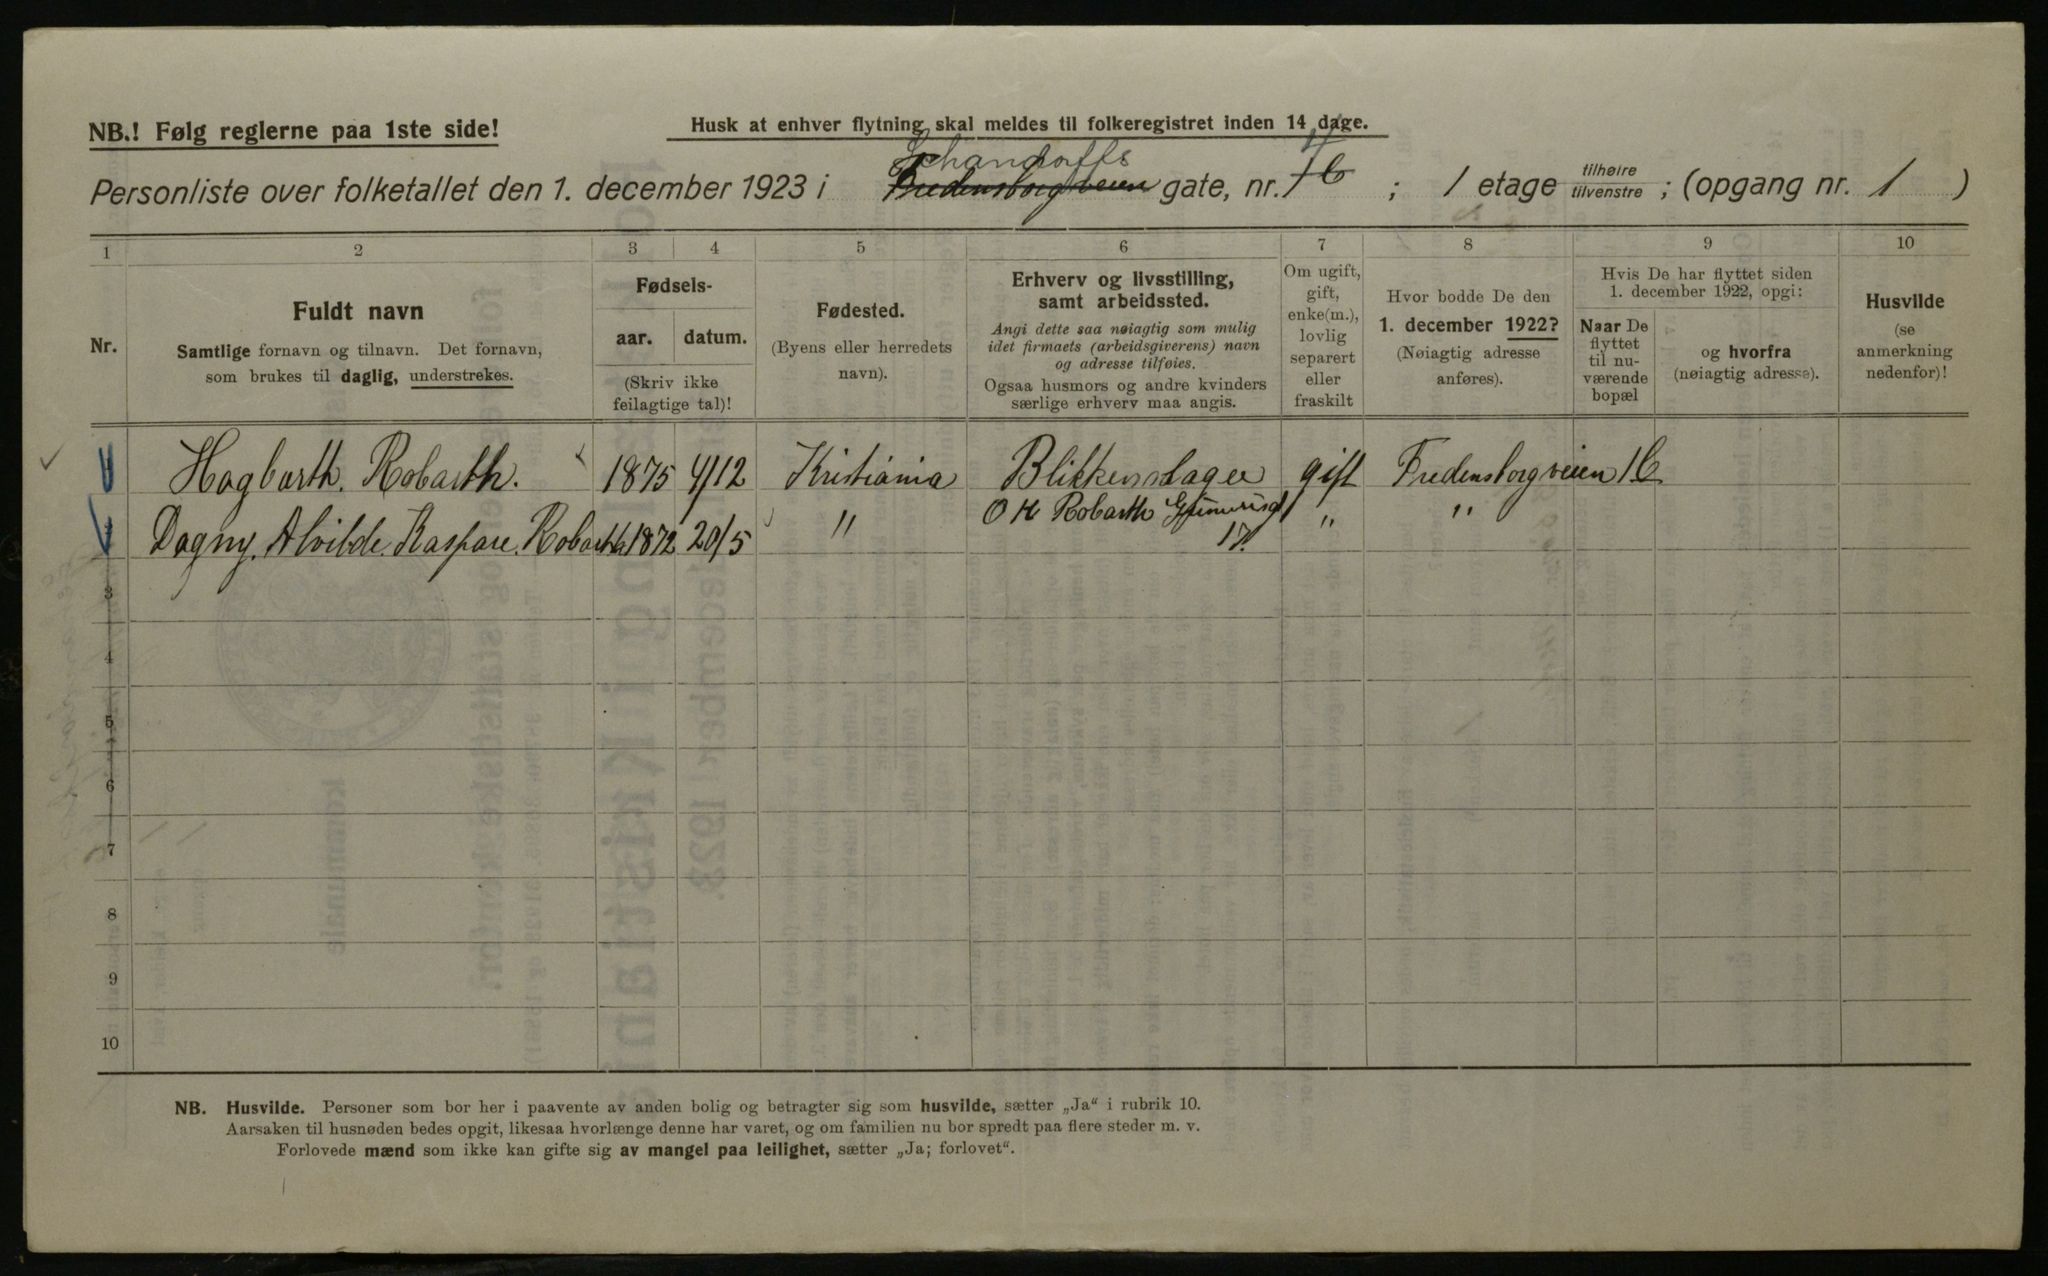 NB.! Følg reglerne paa 1ste side!
Husk at enhver flytning skal meldes til folkeregistret inden 14 dage.
Schandorffs
Personliste over folketallet den 1. december 1923 i Fredensborgveien gate, nr. 1 C ; 1 etage tilhøire tilvenstre ; (opgang nr. 1 )
1 2 3 4 5 6 7 8 9 10
Nr.
Fuldt navn
Samtlige fornavn og tilnavn. Det fornavn,
som brukes til daglig, understrekes.
Fødsels-
aar. datum.
(Skriv ikke
feilagtige tal)!
Fødested.
(Byens eller herredets
navn).
Erhverv og livsstilling,
samt arbeidssted.
Angi dette saa nøiagtig som mulig
idet firmaets (arbeidsgiverens) navn
og adresse tilføies.
Ogsaa husmors og andre kvinders
særlige erhverv maa angis.
Om ugift,
gift,
enke(m.),
lovlig
separert
eller
fraskilt
Hvor bodde De den
1. december 1922?
(Nøiagtig adresse
anføres).
Hvis De har flyttet siden
1. december 1922, opgi:
Naar De
flyttet
til nu-
værende
bopæl
og hvorfra
(nøiagtig adresse).
Husvilde
(se
anmerkning
nedenfor)!
1 Hagbarth. Robarth. 1875 4/12 Kristiania Blikkenslager gift Fredensborgveien 1C
O H Robarth
2 Dagny. Alvilde. Kaspare. Robarth 1872 20/5 " 17. " "
3
4
5
6
7
8
9
10
NB. Husvilde. Personer som bor her i paavente av anden bolig og betragter sig som husvilde, sætter „Ja“ i rubrik 10.
Aarsaken til husnøden bedes opgit, likesaa hvorlænge denne har varet, og om familien nu bor spredt paa flere steder m. v.
Forlovede mænd som ikke kan gifte sig av mangel paa leilighet, sætter „Ja; forlovet“.